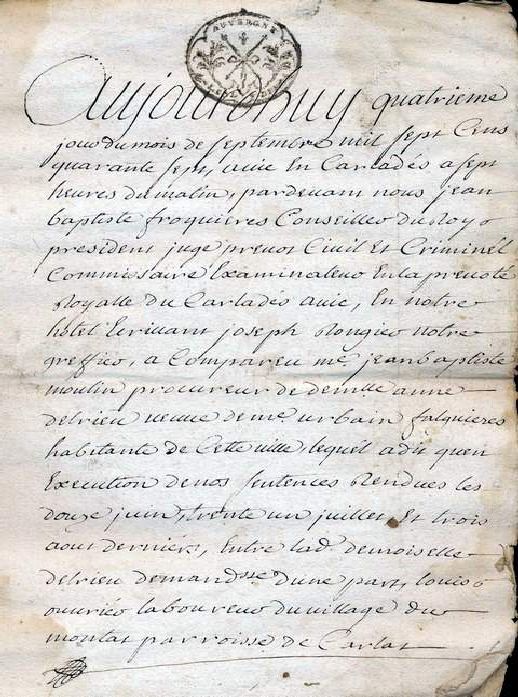 AUVERGNE
Aujourdhuy quatrieme
jour du mois de septembre mil sept cens
quarante sept, a vic en Carladés a sept
heures du matin, pardevant nous jean
baptiste froquieres Conseiller du Roy
president juge prevot Civil Et Criminel
Commissaire Examinateur En la prevoté
Royalle du Carladés a vic, En notre
hôtel Ecrivant joseph Rongier notre
greffier, a Compareu me jean baptiste
moulin procureur de demlle anne
delrieu veuve de me urbain falquieres
habitante de Cette ville, lequel a dit quen
Execution de nos sentences Rendues les
douze juin, trente un juillet, Et trois
aout derniers, Entre lad. demoiselle
delrieu demandsse dune part, louis
ouvrier laboureur du village du
moulat parroisse de Carlat